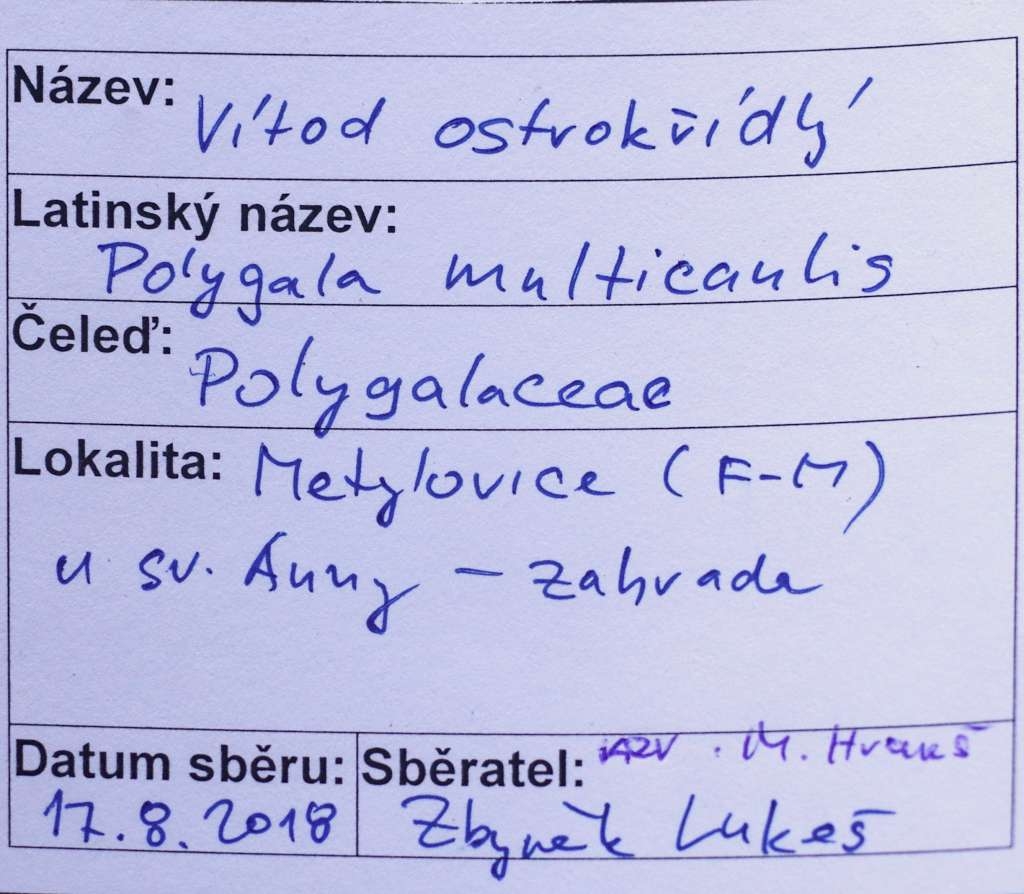 Název: Vítod ostrokřídlý
Latinský název:
Polygala multicaulis
Čeleď: Polygalaceae
Lokalita: Metylovice (F-M)
u sv. Anny - zahrada
Datum sběru: 17.8.2018
Sběratel: M.
Zbyněk Lukeš